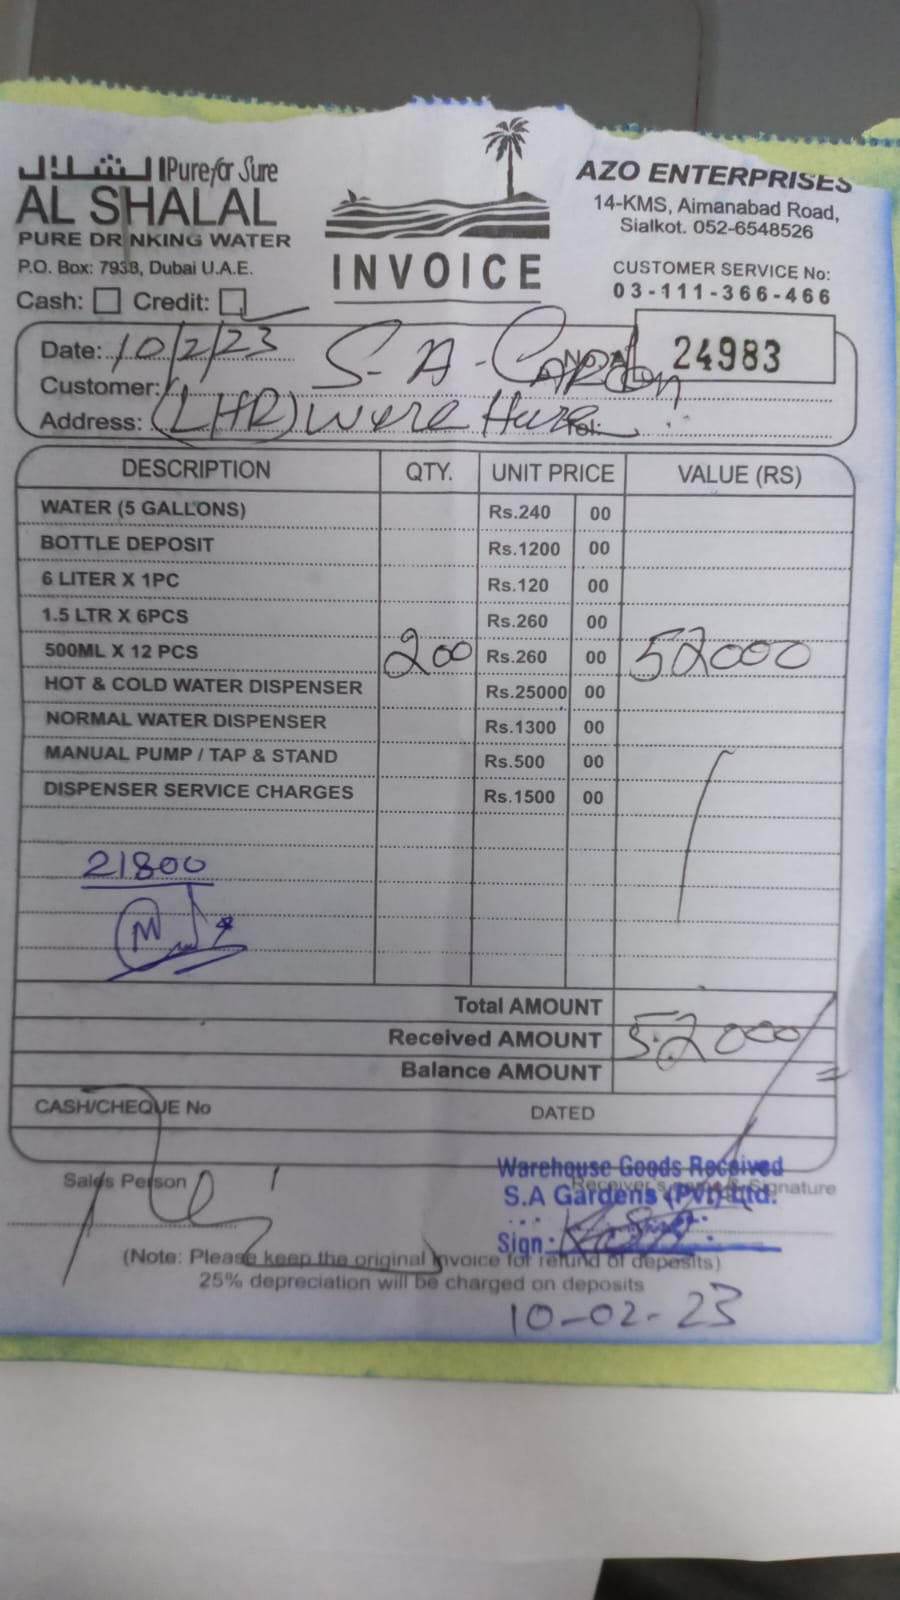 الشلال Pure for Sure
AL SHALAL
PURE DRINKING WATER
P.O. Box: 7938, Dubai U.A.E.
Cash: Credit:
INVOICE
AZO ENTERPRISES
14-KMS, Aimanabad Road,
Sialkot. 052-6548526
CUSTOMER SERVICE No:
03-111-366-466
Date: 10/2/23 No. 24983
Customer: S-A-Garden
Address: (LHR) were House Tel:
DESCRIPTION QTY. UNIT PRICE VALUE (RS)
WATER (5 GALLONS) Rs.240 00
BOTTLE DEPOSIT Rs.1200 00
6 LITER X 1PC Rs.120 00
1.5 LTR X 6PCS Rs.260 00
500ML X 12 PCS 200 Rs.260 00 52000
HOT & COLD WATER DISPENSER Rs.25000 00
NORMAL WATER DISPENSER Rs.1300 00
MANUAL PUMP / TAP & STAND Rs.500 00
DISPENSER SERVICE CHARGES Rs.1500 00
21800
Total AMOUNT
Received AMOUNT 52000/=
Balance AMOUNT
CASH/CHEQUE No DATED
Sales Person
Receiver's name & Signature
Warehouse Goods Received
S.A Gardens (Pvt) Ltd.
Sign:
(Note: Please keep the original invoice for refund of deposits)
25% depreciation will be charged on deposits
10-02-23